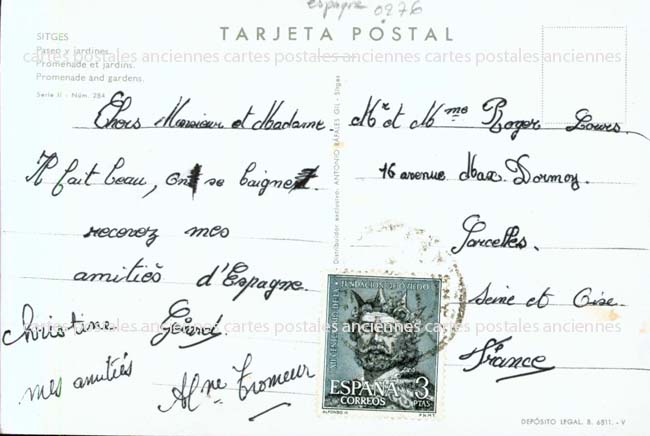 espagne 0276
TARJETA POSTAL
SITGES
Paseo y jardines.
Promenade et jardins.
Promenade and gardens.
Serie II - Núm. 284
cartes postales anciennes cartes postales anciennes cartes postales anciennes
Chers Monsieur et Madame
Il fait beau, on se baigne.
recevez mes
amitiés d'Espagne.
Christine Gérard.
mes amitiés
Distribuidor exclusivo: ANTONIO RAFALES GIL - Sitges
Mr et Mme Roger Louis.
16 avenue Max Dormoy.
Sarcelles.
Seine et Oise.
France
cartes postales anciennes cartes postales anciennes cartes postales anciennes
XII CENTENARIO DE LA FUNDACION DE OVIEDO
ESPAÑA
CORREOS
3
PTAS
ALFONSO II
F.N.M.T.
DEPÓSITO LEGAL. B. 6811. - V